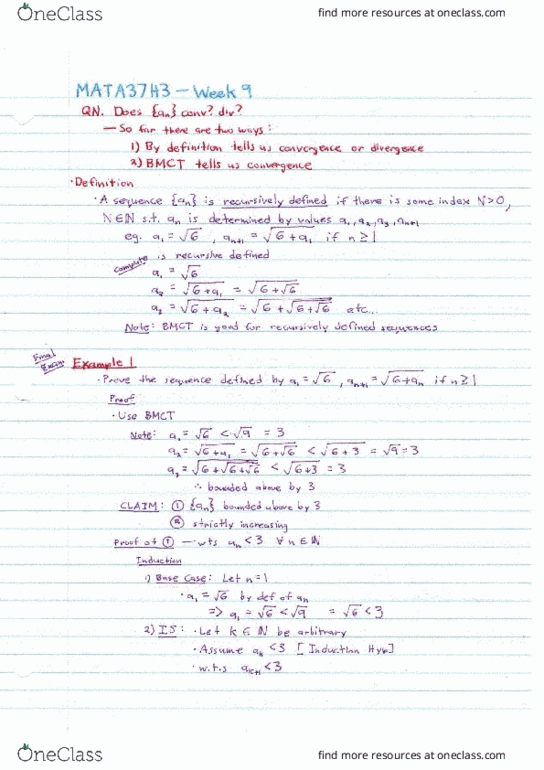 OneClass
find more resources at oneclass.com
MATA37H3 - Week 9
QN. Does {an} conv? div?
- So far there are two ways:
1) By definition tells us convergence or divergence
2) BMCT tells us convergence
· Definition
· A sequence {an} is recursively defined if there is some index N>0,
N∈ℕ s.t. an is determined by values a1, a2, a3, an+1
eg. a1 = √6 , an+1 = √(6+a1) if n≥1
is recursive defined
Compute
a1 = √6
a2 = √(6+a1) = √(6+√6)
a3 = √(6+a2) = √(6+√(6+√6)) etc...
Note: BMCT is good for recursively defined sequences
Final Exam
Example 1
· Prove the sequence defined by a1=√6, an+1=√(6+an) if n≥1
Proof
· Use BMCT
Note: a1 = √6 < √9 = 3
a2 = √(6+a1) = √(6+√6) < √(6+3) = √9 = 3
a3 = √(6+√(6+√6)) < √(6+3) = 3
∴ bounded above by 3
CLAIM: ① {an} bounded above by 3
② strictly increasing
Proof of ① - wts an<3 ∀n∈ℕ
Induction
1) Base Case: Let n=1
· a1 = √6 by def of an
=> a1 = √6 < √9 = √6 < 3
2) IS: · Let k∈ℕ be arbitrary
· Assume ak<3 [Induction Hyp]
· w.t.s ak+1<3
OneClass
find more resources at oneclass.com